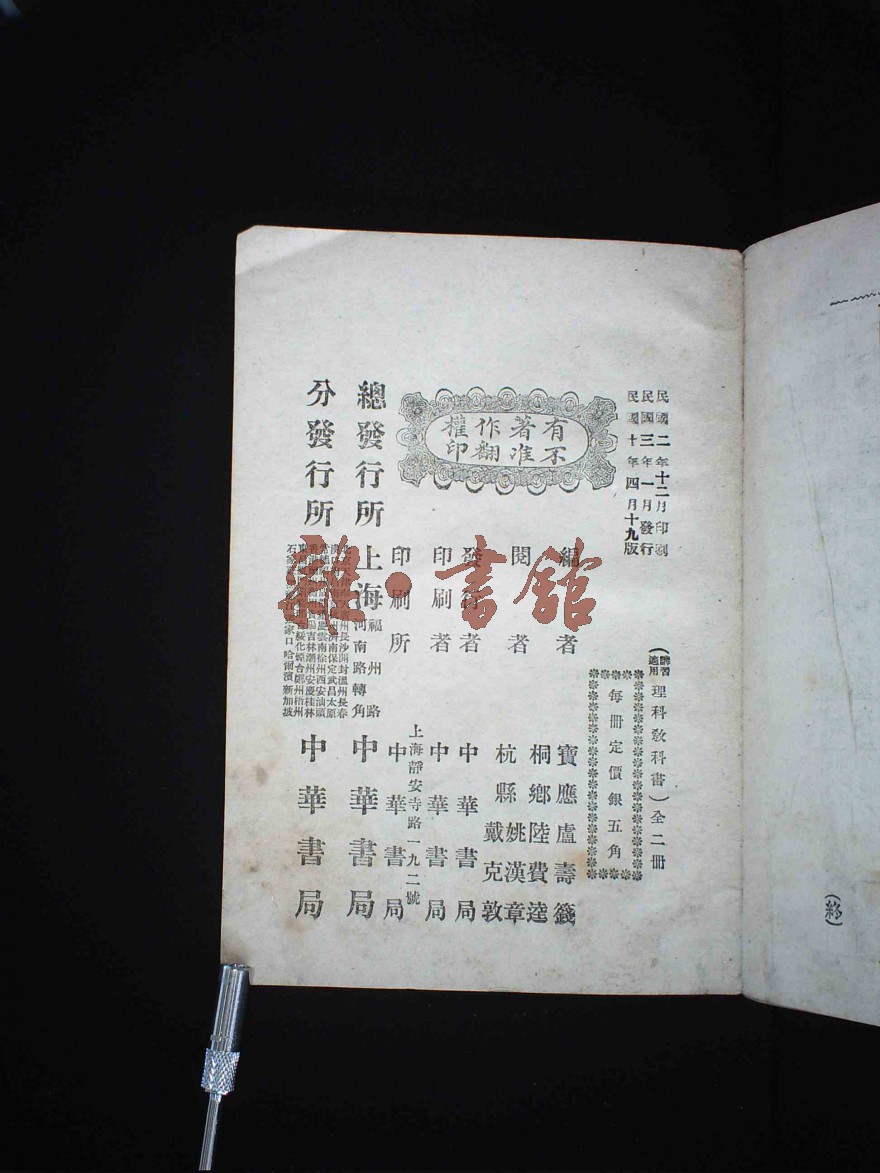 民國二年十二月印刷
民國三年一月發行
民國十年四月十九版
(講習適用 理科教科書) 全二冊
每冊定價銀五角
有著作權
不准翻印
編者 寶應盧壽籛
閱者 桐鄉陸費逵
杭縣姚漢章
戴克敦
發行者 中華書局
印刷者 中華書局
印刷所 上海靜安寺路一九二號
中華書局
總發行所 上海 福州路
河南路轉角 中華書局
分發行所 中華書局
石家 口哈爾濱新加坡
(終)
雜·書館